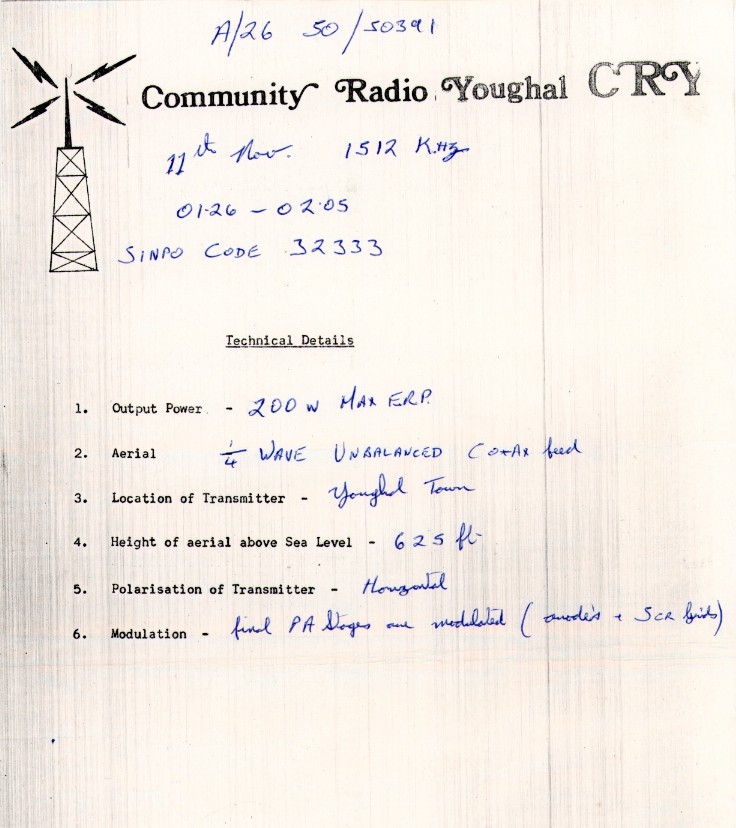 A/26 50/50391
Community Radio Youghal CRY
11th Nov. 1512 KHz
01·26 – 02·05
SINPO CODE 32333
Technical Details
1. Output Power - 200 W MAX ERP.
2. Aerial 1/4 WAVE UNBALANCED COAX feed
3. Location of Transmitter - Youghal Town
4. Height of aerial above Sea Level - 625 ft
5. Polarisation of Transmitter - Horizontal
6. Modulation - final PA Stages are modulated ( anodes + SCR grids)